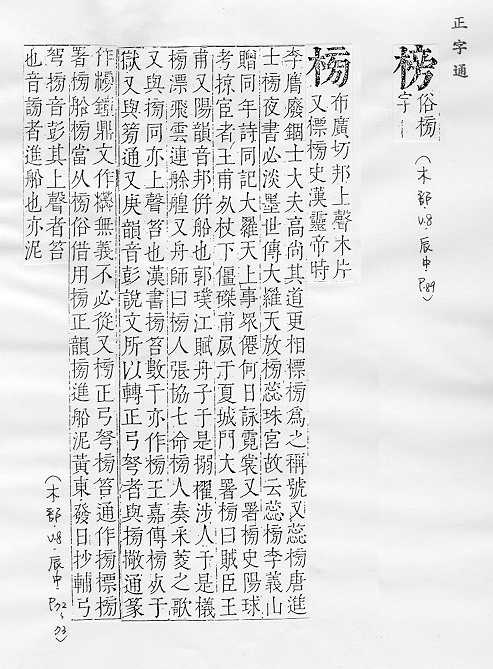 正字通
榜
俗榜
字
(木部.v8.辰中.P.89)
榜
布廣切邦上聲木片
又標榜史漢靈帝時
李膺廢錮士大夫高尚其道更相標榜為之稱號又蕊榜唐進
士榜夜書必淡墨世傳大羅天放榜蕊珠宮故云蕊榜李義山
贈同年詩同記大羅天上事眾僊何日詠霓裳又署榜史陽球
考掠宦者王甫𣦸杖下僵磔甫屍于夏城門大署榜曰賊臣王
甫又陽韻音邦併船也郭璞江賦舟子于是搦櫂涉人于是檥
榜漂飛雲連艅艎又舟師曰榜人張協七命榜人奏采菱之歌
又與榜同亦上聲笞也漢書榜笞數千亦作榜王嘉傳榜𣦸于
獄又與篣通又庚韻音彭說文所以轉正弓弩者與榜檠通篆
作榜鐘鼎文作無義不必從又榜正弓弩榜笞通作榜標榜
署榜船榜當从榜俗借用榜正韻榜進船泥黃東發日抄輔弓
弩榜音彭其上聲者笞
也音謗者進船也亦泥
(木部.v8.辰中.P.72、73)